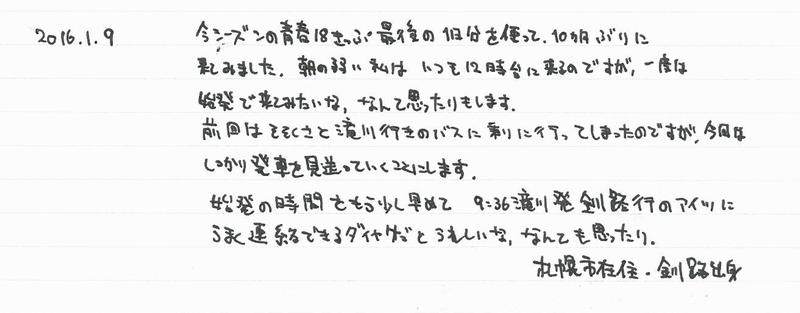 2016.1.9 今シーズンの青春18きっぷ最後の1日分を使って、10か月ぶりに
来てみました。朝の弱い私はいつも12時台に来るのですが、一度は
始発で来てみたいな、なんて思ったりもします。
前回はそそくさと滝川行きのバスに乗りに行ってしまったのですが、今回は
しっかり発車を見送っていくことにします。
始発の時間をもう少し早めて 9:36滝川発釧路行のアイツに
うまく連絡できるダイヤだとうれしいな、なんても思ったり。
札幌市在住・釧路出身